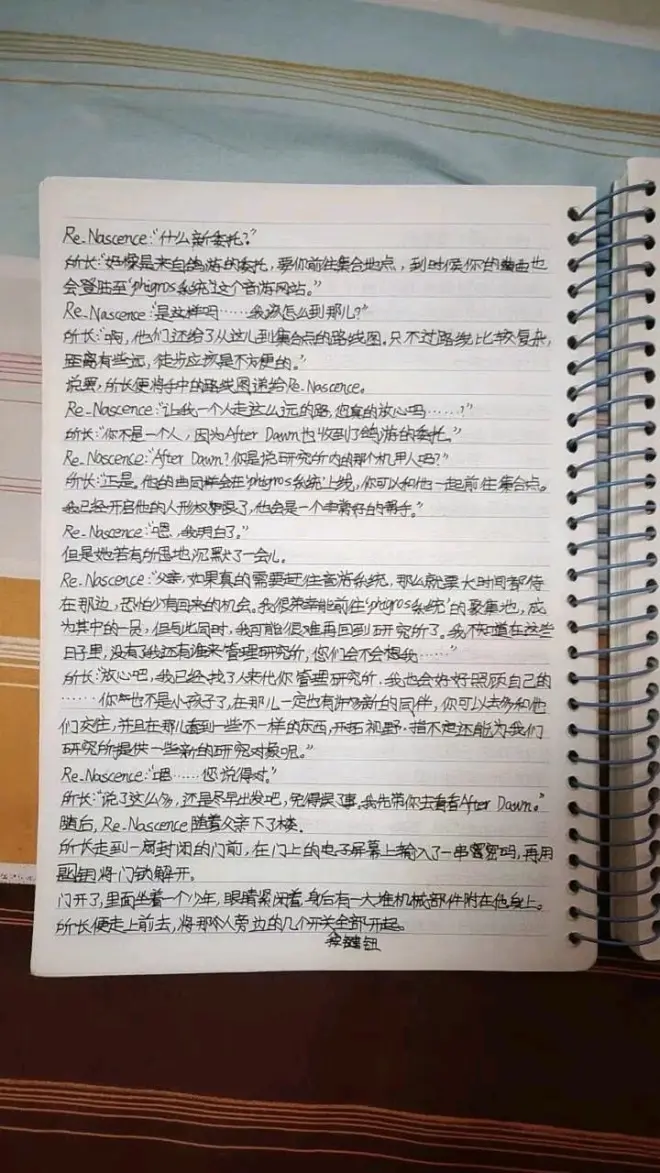 Re_Nascence:“什么新委托?”
所长:“好像是来自鸽游的委托，要你前往集合地点，到时候你的曲也
会登陆至‘phigros系统’这个音游网站。”
Re_Nascence:“是这样吗……我该怎么到那儿?”
所长:“啊，他们还给了从这儿到集合点的路线图。只不过路线比较复杂，
距离有些远，徒步应该是不方便的。”
说罢，所长便将手中的路线图递给Re_Nascence。
Re_Nascence:“让我一个人走这么远的路，您真的放心吗……?”
所长:“你不是一个人，因为After Dawn也收到了鸽游的委托。”
Re_Nascence:“After Dawn?你是说研究所内的那个机甲人吗?”
所长:“正是。他的曲同样会在‘phigros系统’上线，你可以和他一起前往集合点。
我已经开启他的人形权限了，他会是一个非常好的帮手。”
Re_Nascence:“嗯，我明白了。”
但是她若有所思地沉默了一会儿。
Re_Nascence:“父亲，如果真的需要赶往音游系统，那么就要长时间都待
在那边，恐怕少有回来的机会。我很荣幸能前往‘phigros系统’的聚集地，成
为其中的一员，但与此同时，我可能很难再回到研究所了。我不知道在这些
日子里，没有了我还有谁来管理研究所，您们会不会想我……”
所长:“放心吧，我已经找了人来代你管理研究所，我也会好好照顾自己的
……你也不是小孩子了，在那儿一定也有许多新的同伴，你可以去多和他
们交往，并且在那儿看到一些不一样的东西，开拓视野，指不定还能为我们
研究所提供一些新的研究对象呢。”
Re_Nascence:“嗯……您说得对。”
所长:“说了这么多，还是尽早出发吧，免得误了事。我先带你去看看After Dawn。”
随后，Re_Nascence随着父亲下了楼。
所长走到一扇封闭的门前，在门上的电子屏幕上输入了一串密码，再用
钥匙将门锁解开。
门开了，里面坐着一个少年，眼睛紧闭着，身后有一大堆机械部件附在他身上。
所长便走上前去，将那个人旁边的几个开关全部开起。
按键钮